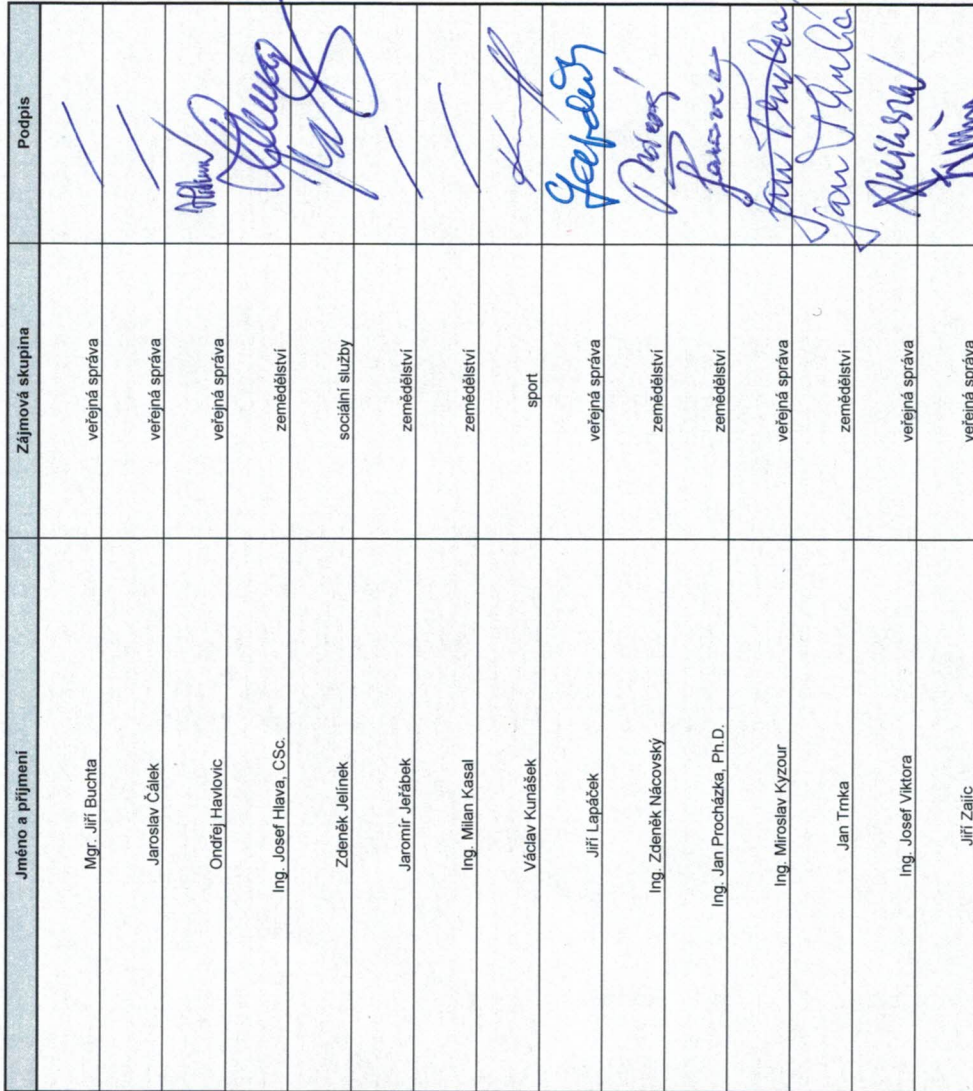 Jméno a příjmení Zájmová skupina Podpis
Mgr. Jiří Buchta veřejná správa
Jaroslav Čálek veřejná správa
Ondřej Havlovic veřejná správa
Ing. Josef Hlava, CSc. zemědělství
Zdeněk Jelínek sociální služby
Jaromír Jeřábek zemědělství
Ing. Milan Kasal zemědělství
Václav Kunášek sport
Jiří Lapáček veřejná správa
Ing. Zdeněk Nácovský zemědělství
Ing. Jan Procházka, Ph.D. zemědělství
Ing. Miroslav Kyzour veřejná správa
Jan Trnka zemědělství
Ing. Josef Viktora veřejná správa
Jiří Zajíc veřejná správa